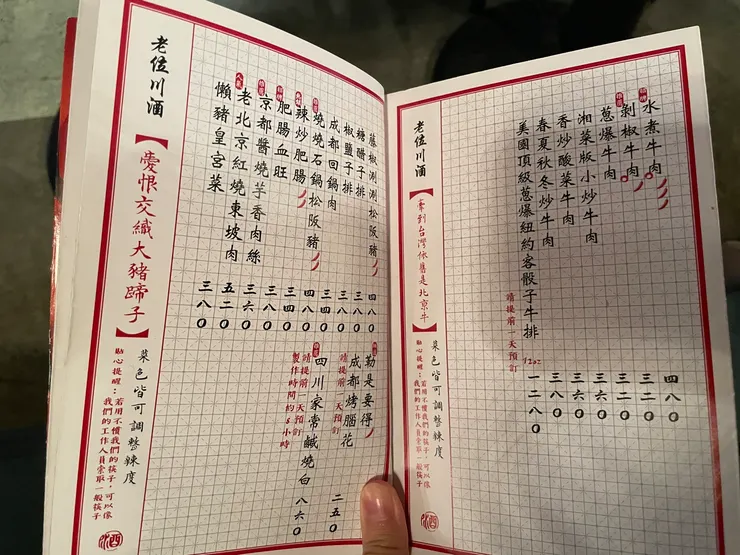 水煮牛肉 四八0
剝椒牛肉 三二0
蔥爆牛肉 三二0
湘菜版小炒牛肉 三六0
香炒酸菜牛肉 三六0
春夏秋冬炒牛肉 三八0
美國頂級蔥爆紐約客骰子牛排 12oz 一二八0
請提前一天預訂
老位川酒【拿到台灣依舊是北京牛】菜色皆可調整辣度
貼心提醒：若用不慣我們的筷子，可以像
我們的工作人員索取一般筷子
藤椒涮涮松阪豬 四八0
糖醋子排 三八0
椒鹽子排 三八0
成都回鍋肉 三四0
燒燒石鍋松阪豬 四八0
辣炒肥腸 三四0
肥腸血旺 三八0
京都醬燒芋香肉絲 三六0
老北京紅燒東坡肉 五二0
懶豬皇宮菜 三八0
勒是要得
成都烤腦花 二五0
請提前一天預訂
四川家常鹹燒白 八六0
請提前一天預訂
製作時間約8小時
老位川酒【愛恨交織大豬蹄子】菜色皆可調整辣度
貼心提醒：若用不慣我們的筷子，可以像
我們的工作人員索取一般筷子